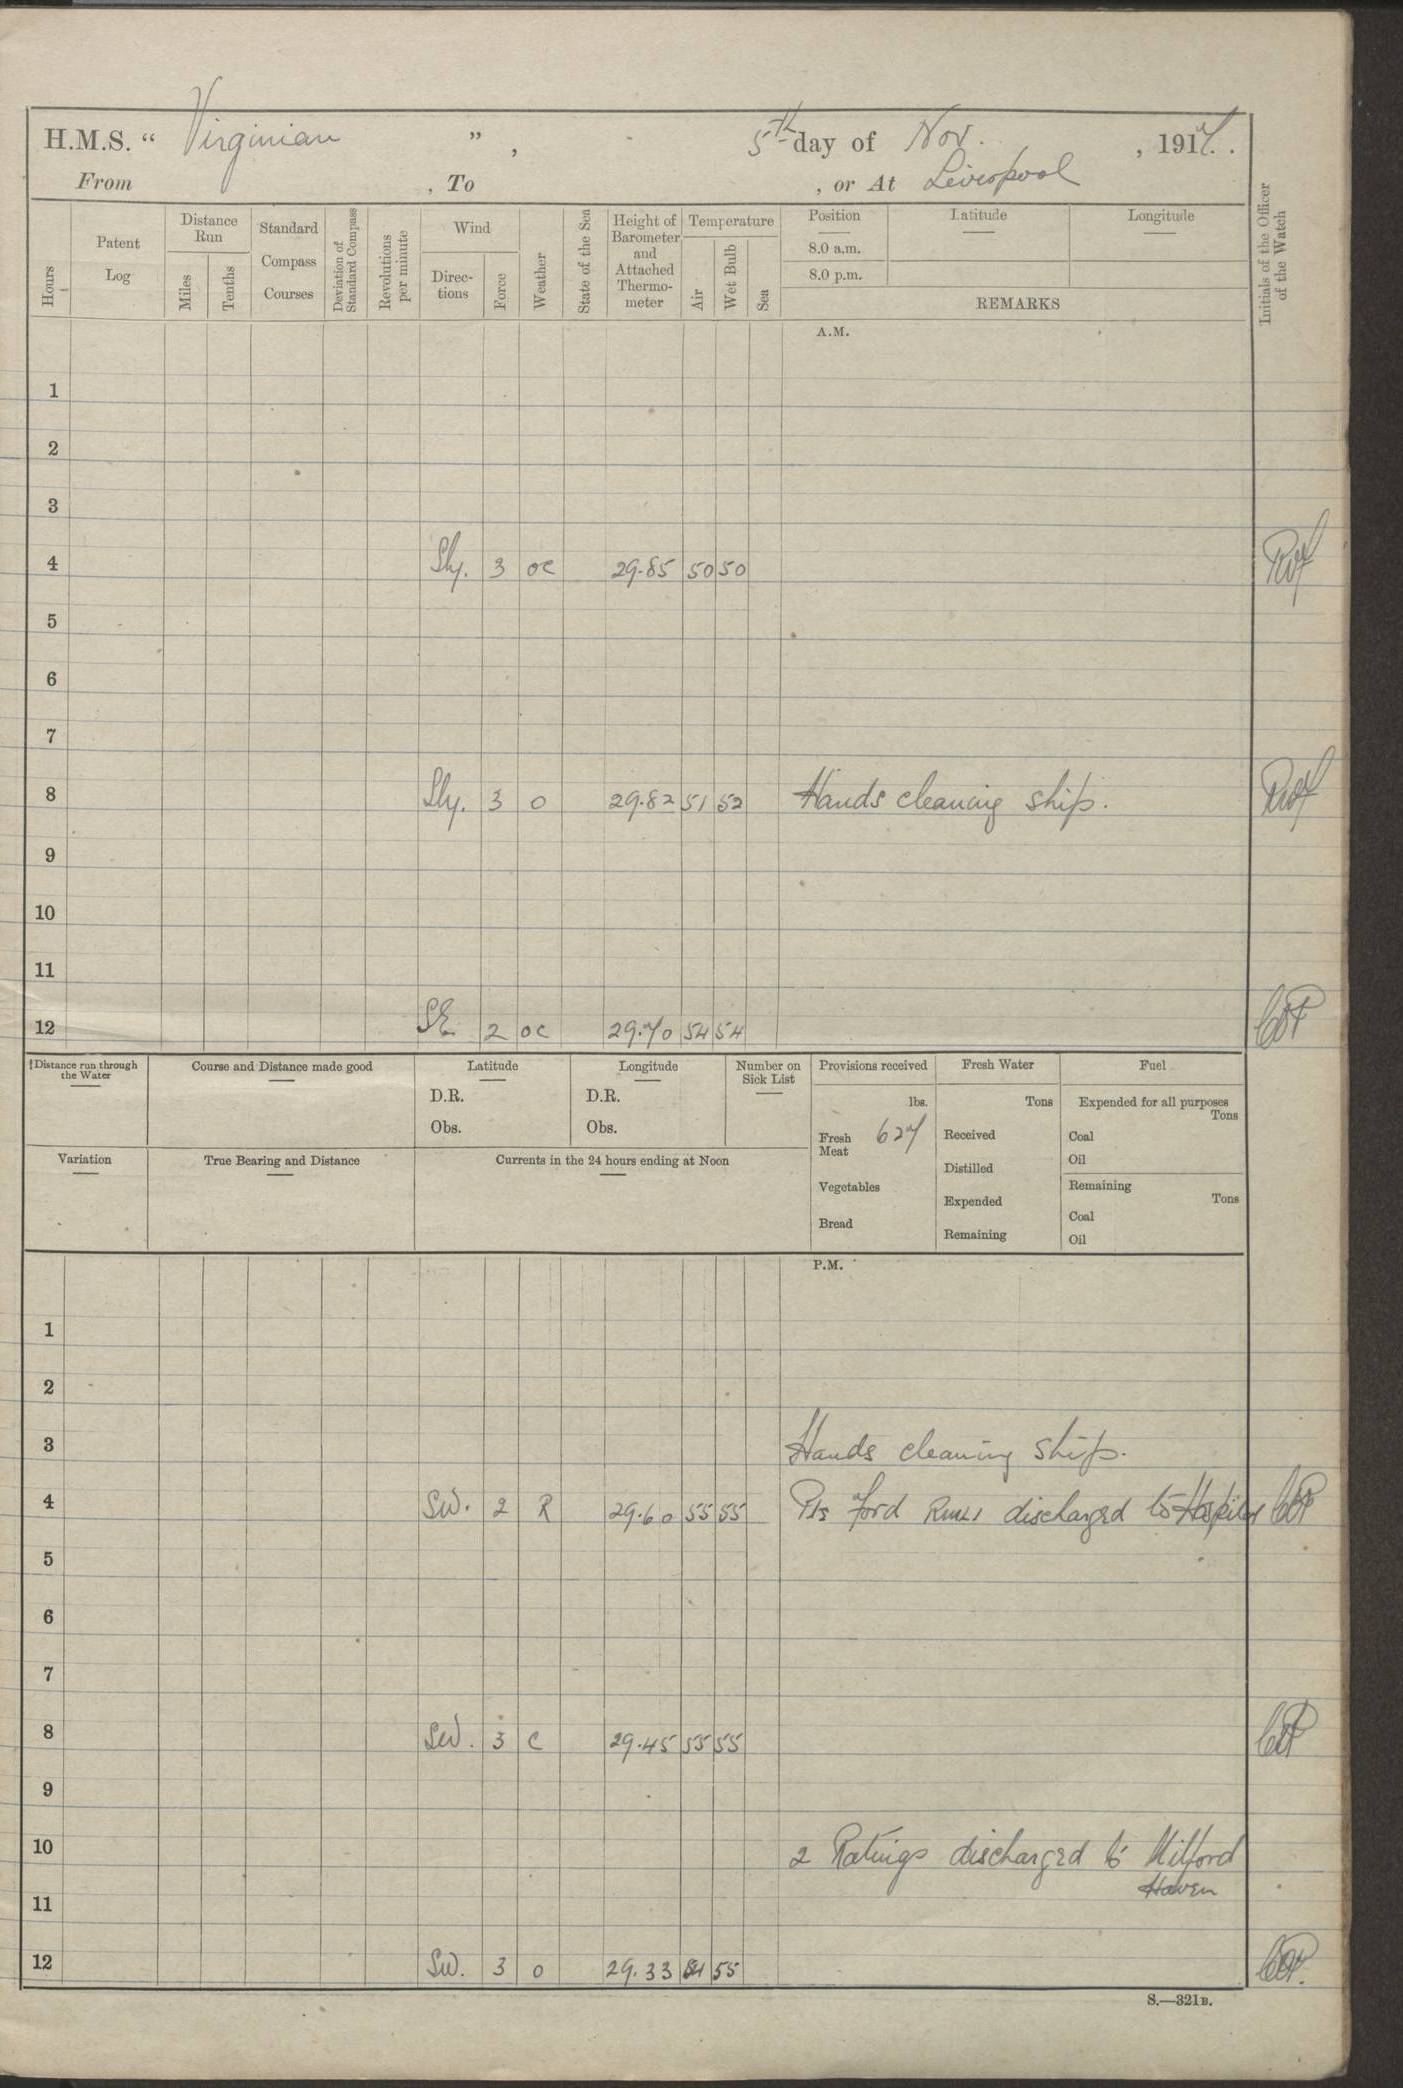 H.M.S. “ Virginian ” , 5th day of Nov. , 1917.
From , To , or At Liverpool
Hours
Patent Log
Distance Run
Miles
Tenths
Standard Compass Courses
Deviation of Standard Compass
Revolutions per minute
Wind
Directions
Force
Weather
State of the Sea
Height of Barometer and Attached Thermometer
Temperature
Air
Wet Bulb
Sea
Position
8.0 a.m.
8.0 p.m.
Latitude
Longitude
REMARKS
Initials of the Officer of the Watch
A.M.
1
2
3
4 Sly. 3 oc 29.85 50 50
5
6
7
8 Sly. 3 o 29.82 51 52 Hands cleaning ship.
9
10
11
12 SE 2 oc 29.70 54 54
†Distance run through the Water
Course and Distance made good
Latitude
D.R.
Obs.
Longitude
D.R.
Obs.
Number on Sick List
Provisions received
lbs.
Fresh Meat 627
Vegetables
Bread
Fresh Water
Tons
Received
Distilled
Expended
Remaining
Fuel
Expended for all purposes
Tons
Coal
Oil
Remaining
Tons
Coal
Oil
Variation
True Bearing and Distance
Currents in the 24 hours ending at Noon
P.M.
1
2
3 Hands cleaning ship.
4 SW. 2 R 29.60 55 55 Pte Ford RMLI discharged to Hospital
5
6
7
8 SW. 3 c 29.45 55 55
9
10 2 Ratings discharged to Milford
Haven
11
12 SW. 3 o 29.33 54 55
S.—321B.